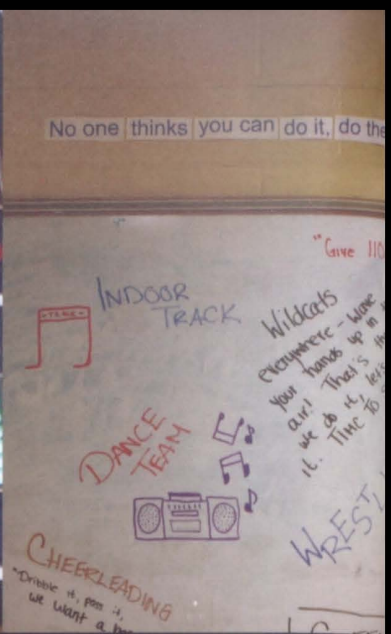 No one thinks you can do it, do
"Give
INDOOR
TRACK
Wildcats
everywhere - Wave
your hands up in
air! That's
we do it, let's
it. Time To
DANCE
TEAM
WREST
CHEERLEADING
"Dribble it, pass it,
we want a